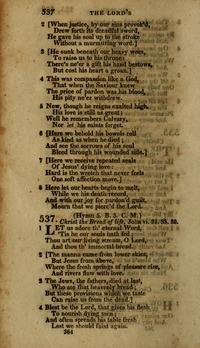 537 THE LORD'S
2 [When justice, by our sins provok'd,
Drew forth its dreadful sword,
He gave his soul up to the stroke
Without a murmuring word.]
3 [He sunk beneath our heavy woes,
To raise us to his throne;
There's ne'er a gift his hand bestows,
But cost his heart a groan.]
4 This was compassion like a God,
That when the Saviour knew
The price of pardon was his blood,
His pity ne'er withdrew.
5 Now, though he reigns exalted high,
His love is still as great:
Well he remembers Calvary,
Nor let his saints forget.
6 [Here we behold his bowels roll
As kind as when he died;
And see the sorrows of his soul
Bleed through his wounded side.]
7 [Here we receive repeated seals
Of Jesus' dying love:
Hard is the wretch that never feels
One soft affection move.]
8 Here let our hearts begin to melt,
While we his death record,
And with our joy for pardon'd guilt,
Mourn that we pierc'd the Lord.
537. (Hymn 5. B. 3. C. M.)
Christ the Bread of life, John vi. 31, 35, 39.
1 LET us adore th' eternal Word,
'Tis he our souls hath fed:
Thou art our living stream, O Lord,
And thou th' immortal bread.
2 [The manna came from lower skies,
But Jesus from above,
Where the fresh springs of pleasure rise,
And rivers flow with love.
3 The Jews, the fathers, died at last,
Who eat that heavenly bread;
But these provisions which we taste
Can raise us from the dead.]
4 Blest be the Lord, that gives his flesh
To nourish dying men;
And often spreads his table fresh
Lest we should faint again.
364